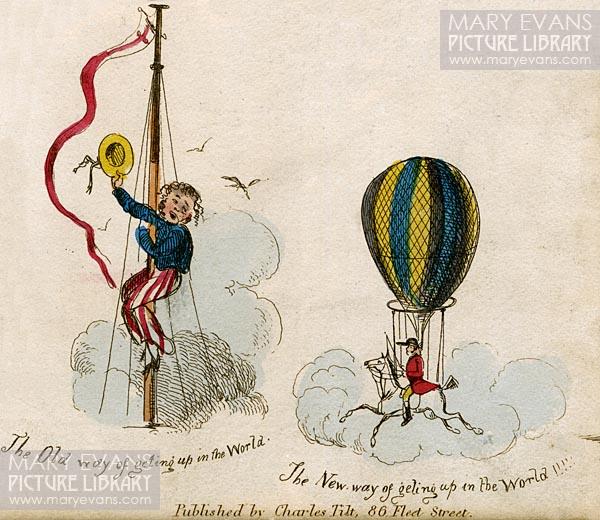 MARY EVANS
PICTURE LIBRARY
www.maryevans.com
The Old way of geting up in the World.
The New way of geting up in the World !!!!
MARY EVANS
PICTURE LIBRARY
www.maryevans.com
Published by Charles Tilt, 86 Fleet Street.